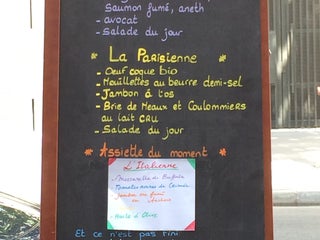 Saumon fumé, aneth
- avocat
- Salade du jour
* La Parisienne *
- Oeuf coque bio
- Mouillettes au beurre demi-sel
- Jambon à l'os
- Brie de Meaux et Coulommiers
au lait CRU
- Salade du jour
* Assiette du moment *
L'Italienne
- Mozzarella di Bufala
- Jambon
- Huile d'Olive
Et ce n'est pas fini